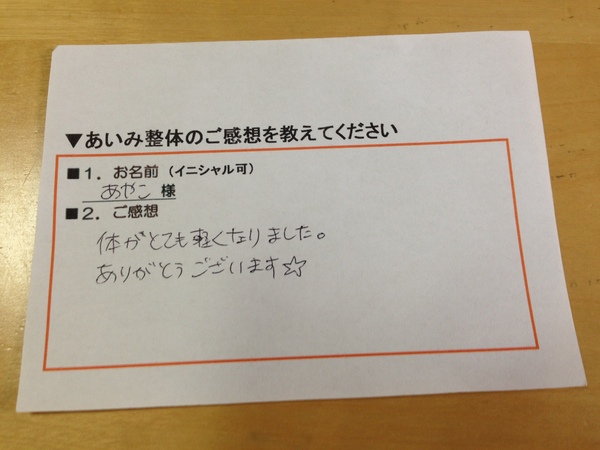 ▼あいみ整体のご感想を教えてください
■1．お名前（イニシャル可）
あやこ 様
■2．ご感想
体がとても軽くなりました。
ありがとうございます☆